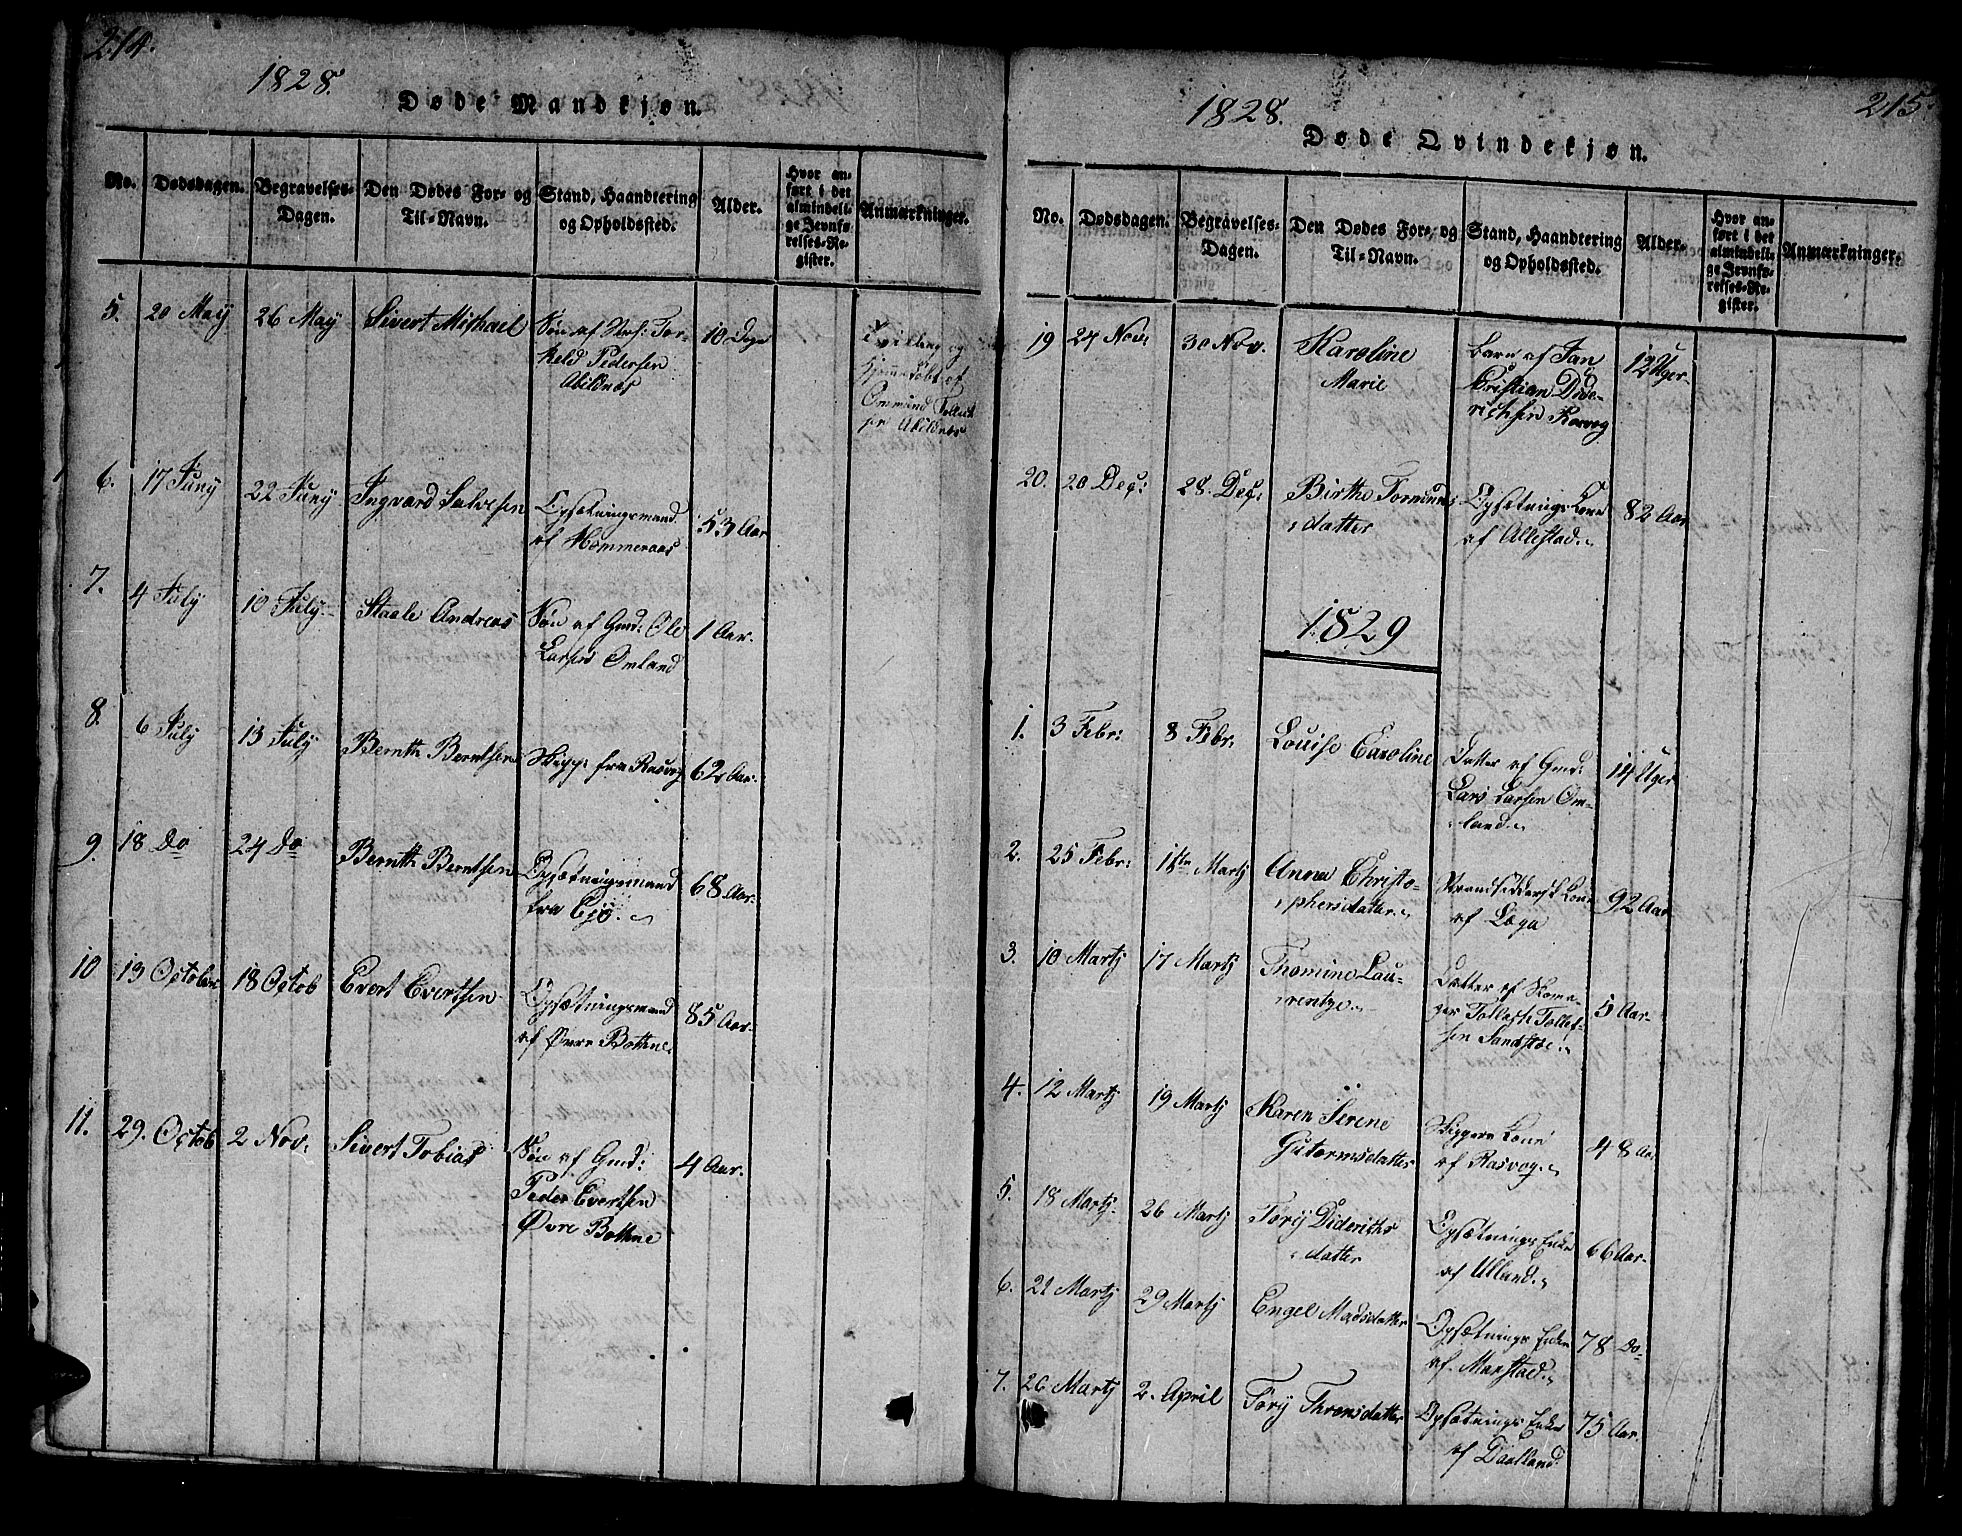 214.
1828.
Døde Mandkjøn.
No. Dødsdagen. Begravelses-Dagen. Den Dødes For- og Til-Navn. Stand, Haandtering og Opholdssted. Alder. Hvor anført i det almindelige Jevnførelses-Register. Anmærkninger.
5. 20 May 26 May Sivert Michael Søn af Tor-
keld Pedersen
Abildnæs
10 Dage
Tvilling og
hjemmedøbt af
Ommund Tollack
sen Abildnæs
6. 17 Juny 22 Juny Ingvard Salvesen Opsætningsmand
af Hommeraas
53 Aar
7. 4 July 10 July. Staale Andreas Søn af Gmd: Ole
Larsen Omland
1 Aar.
8. 6 July 13 July Bernth Berntsen Skipp: fra Rasvog 62 Aar.
9. 18 Do 24 Do Bernth Berntsen Opsætningsmand
fra Egø.
68 Aar.
10 13 October 18 Octob Evert Evertsen Opsætningsmand
af Øvre Bothne.
85 Aar.
11. 29. Octob 2 Nov. Sivert Tobias Søn af Gmd:
Peder Evertsen
Øvre Bothne
4 Aar.
215.
1828.
Døde Qvindekjøn.
No. Dødsdagen. Begravelses-Dagen. Den Dødes For-, og Til-Navn. Stand, Haandtering og Opholdssted. Alder. Hvor anført i det almindelige Jevnførelses-Register. Anmærkninger.
19 24 Nov: 30 Nov. Karoline
Marie
Barn af Jan
Cristian Dide-
richsen Rasvog
12 Uger
20. 20 Dec: 28. Dec: Birthe Tormunds
datter
Opsætnings Kone
af Allestad.
82 Aar
1829
1. 3 Febr: 8 Febr. Louise Caroline Datter af Gmd:
Lars Larsen Om-
land.
14 Uger
2. 25 Febr: 1ste Martj Anna Christo-
phersdatter.
Strandsidders Kone
af Løga
92 Aar
3. 10 Martj 17 Martj Thomine Lau-
rentze.
Datter af Skoma-
ger Tollach Tollef-
sen Sandstøe.
5 Aar
4. 12 Martj 19 Martj Karen Sirene
Gutormsdatter
Skippers Kone
af Rasvog.
48 Aar
5. 18 Martj. 26 Martj Torij Diderichs
datter
Opsætnings Enke
af Ulland.
66 Aar.
6. 21 Martj 29 Martj Engel Madsdatter Opsætnings Enke
af Manstad.
78 Do
7. 26 Martj 2. April Torij Thronsdatter Opsætnings Enke
af Daatland
75 Aar.